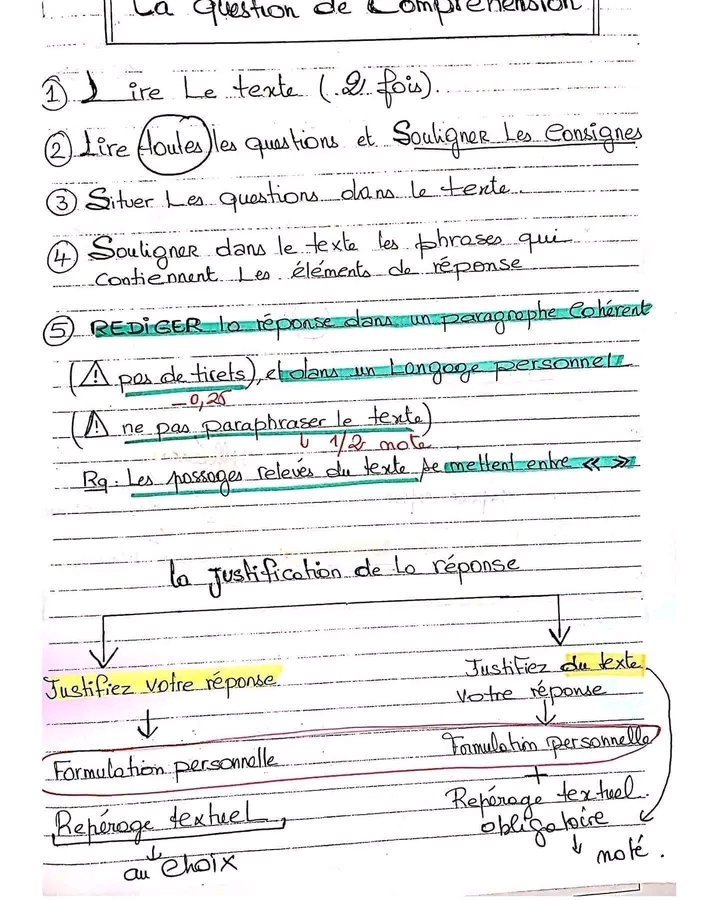 La Question de Compréhension
① Lire Le texte (2 fois).
② Lire toutes les questions et Souligner Les Consignes
③ Situer Les questions dans le texte.
④ Souligner dans le texte les phrases qui
contiennent Les éléments de réponse
⑤ REDIGER la réponse dans un paragraphe Cohérent
(⚠ pas de tirets), et dans un Langage personnel
-0,25
(⚠ ne pas paraphraser le texte)
↓ 1/2 note
Rq. Les passages relevés du texte se mettent entre « »
la justification de la réponse
Justifiez votre réponse
Justifiez du texte
votre réponse
Formulation personnelle
Formulation personnelle
+
Repérage textuel
Repérage textuel
obligatoire
au choix
noté.